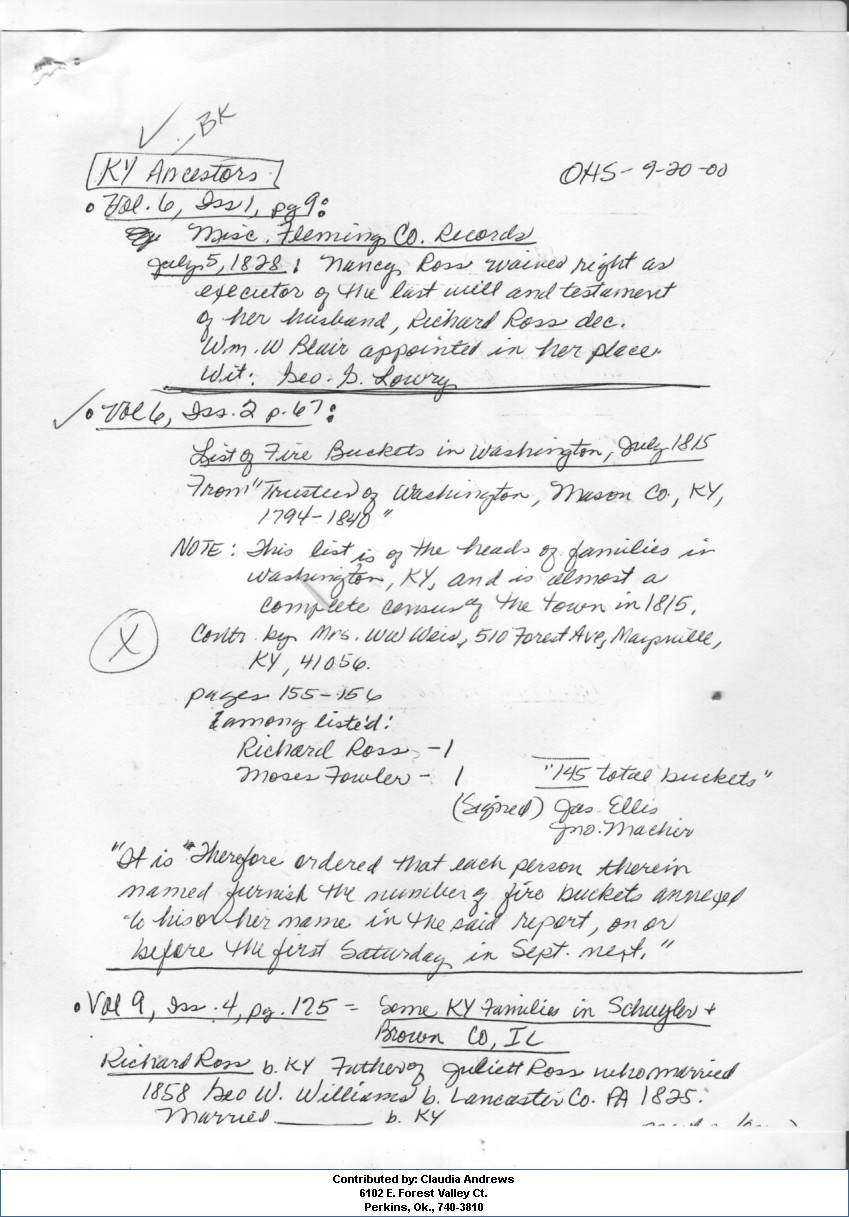 ✓ BK
KY Ancestors
OHS - 9-20-00
• Vol. 6, Iss 1, pg 9:
Misc. Fleming Co. Records
July 5, 1828: Nancy Ross waived right as
executor of the last will and testament
of her husband, Richard Ross dec.
Wm. W Blair appointed in her place.
Wit: Geo. G. Lowry
✓ • Vol 6, Iss. 2 p. 67:
List of Fire Buckets in Washington, July 1815
From "Trustees of Washington, Mason Co., KY,
1794-1840"
NOTE: This list is of the heads of families in
Washington, KY, and is almost a
complete census of the town in 1815.
X
Contr. by Mrs. WW Weis, 510 Forest Ave, Maysville,
KY, 41056.
pages 155-156
among listed:
Richard Ross -1
Moses Fowler - 1
"145 total buckets"
(Signed) Jas. Ellis
Jno. Machir
"It is "Therefore ordered that each person therein
named furnish the number of fire buckets annexed
to his or her name in the said report, on or
before the first Saturday in Sept. next."
• Vol 9, Iss. 4, pg. 125 = Some KY Families in Schuyler +
Brown Co, IL
Richard Ross b. KY Father of Juliett Ross who married
1858 Geo W. Williams b. Lancaster Co. PA 1825.
Married b. KY
Contributed by: Claudia Andrews
6102 E. Forest Valley Ct.
Perkins, Ok., 740-3810